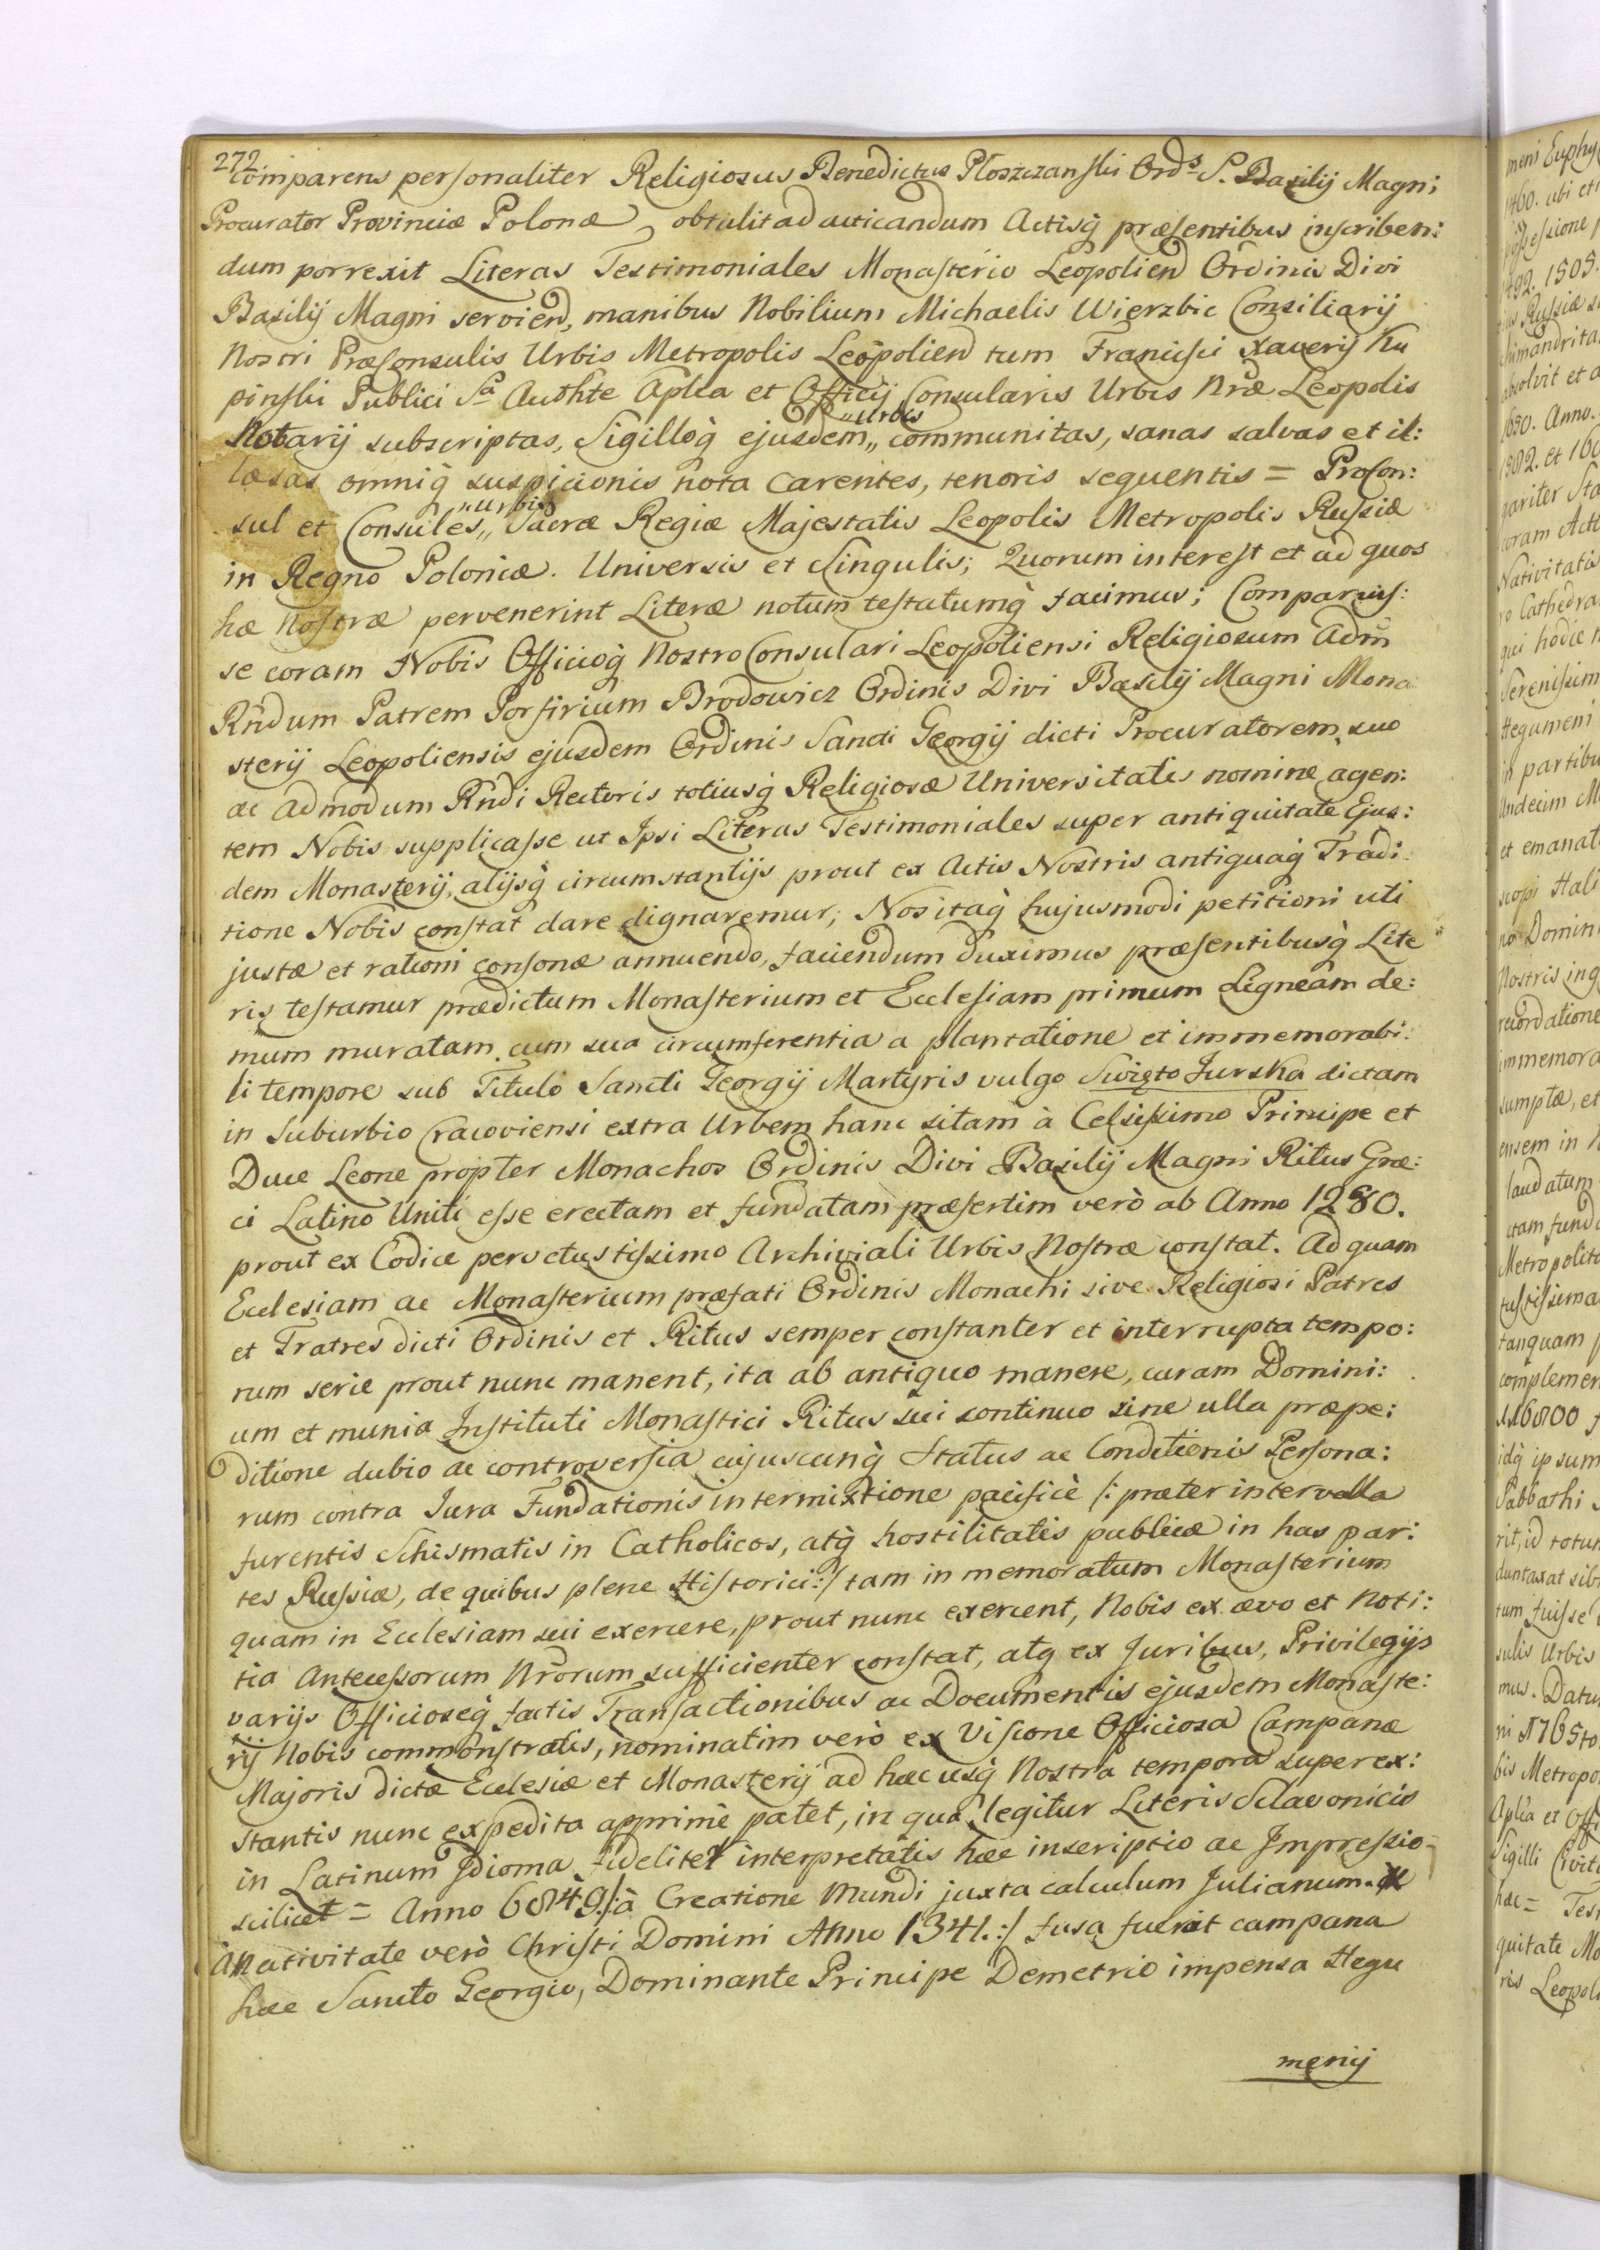 272
comparens personaliter Religiosus Benedictus Płoszczanski Ord.s S. Basilij Magni
Procurator Provinciæ Polonæ, obtulit ad acticandum Actisq̀ præsentibus inscriben:
dum porrexit Literas Testimoniales Monasterio Leopolien̄d Ordinis Divi
Basilij Magni servien̄d, manibus Nobilium Michaelis Wierzbic Consiliarij
Nostri Præsonsulis Urbis Metropolis Leopolien̄d tum Francisci Xaverij Ku
pinski Publici Sa Authte Aplca et Officij Consularis Urbis Nræ Leopolis
Notarij subscriptas, Sigilloq̀ ejusdem „Urbis„ communitas, sanas salvas et il:
læsas omniq̀ suspicionis nota carentes, tenoris sequentis = Procon:
sul et Consules „Urbis„ Sacræ Regiæ Majestatis Leopolis Metropolis Russiæ
in Regno Poloniæ. Universis et Singulis; Quorum interest et ad quos
hæ Nostræ pervenerint Literæ notum testatumq̀ facimus; Comparuis:
se coram Nobis Officioq̀ Nostro Consulari Leopoliensi Religiosum Adm̄
Rn̄dum Patrem Porfirium Brodowicz Ordinis Divi Basilij Magni Mona
sterij Leopoliensis ejusdem Ordinis Sancti Georgij dicti Procuratorem, suo
ac admodum Rn̄di Rectoris totiusq̀ Religiosæ Universitatis nomine agen:
tem Nobis supplicasse ut Ipsi Literas Testimoniales super antiquitate Ejus:
dem Monasterij, alijsq̀ circumstantijs prout ex Actis Nostris antiquaq̀ Tradi:
tione Nobis constat dare dignaremur; Nos itaq̀ hujusmodi petitioni uti
justæ et rationi consonæ annuendo, faciendum duximus præsentibusq̀ Lite
ris testamur prædictum Monasterium et Ecclesiam primum Ligneam de:
mum muratam cum sua circumferentia a plantatione et immemorabi:
li tempore sub Titulo Sancti Georgij Martyris vulgo Swięto Jurska dictam
in Suburbio Cracoviensi extra Urbem hanc sitam à Celsissimo Principe et
Duce Leone propter Monachos Ordinis Divi Basilij Magni Ritus Græ:
ci Latino Uniti esse erectam et fundatam præsertim verò ab Anno 1280.
prout ex Codice pervetustissimo Archiviali Urbis Nostræ constat. Ad quam
Ecclesiam ac Monasterium præfati Ordinis Monachi sive Religiosi Patres
et Fratres dicti Ordinis et Ritus semper constanter et interrupta tempo:
rum serie prout nunc manent, ita ab antiquo manere, curam Domini:
um et munia Instituti Monastici Ritus sui continuo sine ulla præpe:
ditione dubio ac controversia cujuscunq̀ Status ac Conditionis Persona:
rum contra Jura Fundationis intermixtione pacificè /: præter intervalla
furentis Schismatis in Catholicos, atq̀ hostilitatis publicæ in has par:
tes Russiæ, de quibus plene Historici :/ tam in memoratum Monasterium
quam in Ecclesiam sui exercere, prout nunc exercent, Nobis ex ævo et Noti:
tia Antecessorum Nrorum sufficienter constat, atq̀ ex Juribus, Privilegijs
varijs Officioseq̀ factis Transactionibus ac Documentis ejusdem Monaste:
rij Nobis commonstratis, nominatim verò ex Visione Officiosa Campanæ
Majoris dictæ Ecclesiæ et Monasterij ad hæc usq̀ Nostra tempora superex:
stantis nunc expedita apprimè patet, in qua legitur Literis Sclavonicis
in Latinum Idioma fideliter interpretatis hæc inscriptio ac Impressio
scilicet = Anno 6849 /: à Creatione Mundi juxta calculum Julianum.
à Nativitate verò Christi Domini Anno 1341. :/ fusa fuerat campana
hæc Sancto Georgio, Dominante Principe Demetrio impensa Hegu
menij
meni Euphy
1460. ubi et
possessione
492. 1505.
Russiæ
absolvit et a
1650. Anno.
pariter Sta
coram Act
Nativitatis
Cathedra
qui hodie
Serenissim
Hegumeni
in partibu
Undecim M
et emanat
scopi Hali
Domin
Nostris ing
recordatione
immemora
sumptæ, et
ensem in
laudatum
ctam fund
Metropolit
tustissima
tanquam p
complemen
idq̀ ipsum
Sabbathi
rit, id totum
duntaxat sibi
tum fuisse
sulis Urbis
mus. Datu
bis Metropo
Aplca et Off
Sigilli Civit
hæc = Tes
quitate Mo
ris Leopol